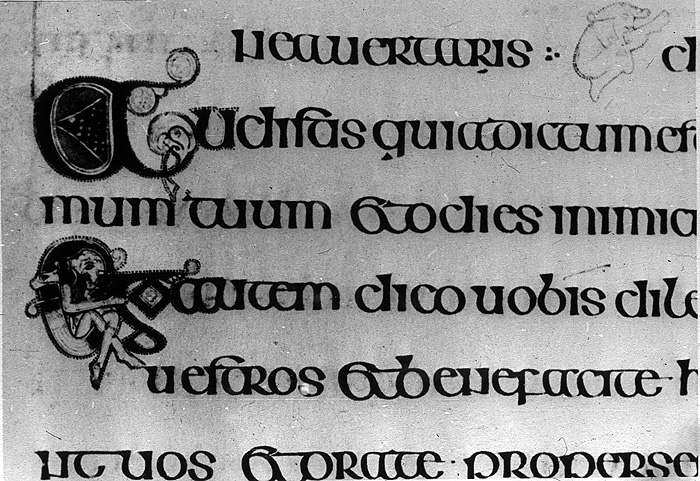 neauertaris :· d
Audistis quia dictum es
mum tuum & odies inimic
Ego autem dico uobis dili
uestros & benefacite · h
nt uos & orate · properse